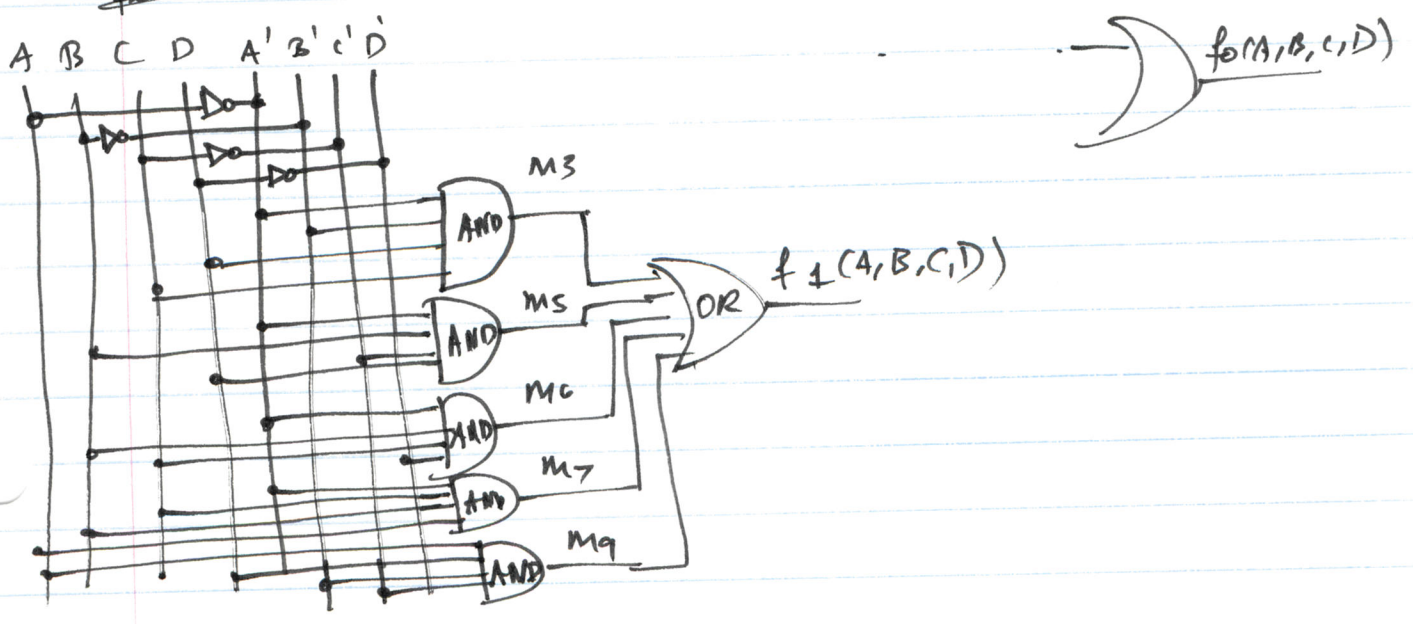 A B C D A' B' C' D'
fo(A,B,C,D)
m3
AND
f1(A,B,C,D)
OR
m5
AND
m6
AND
m7
AND
m9
AND